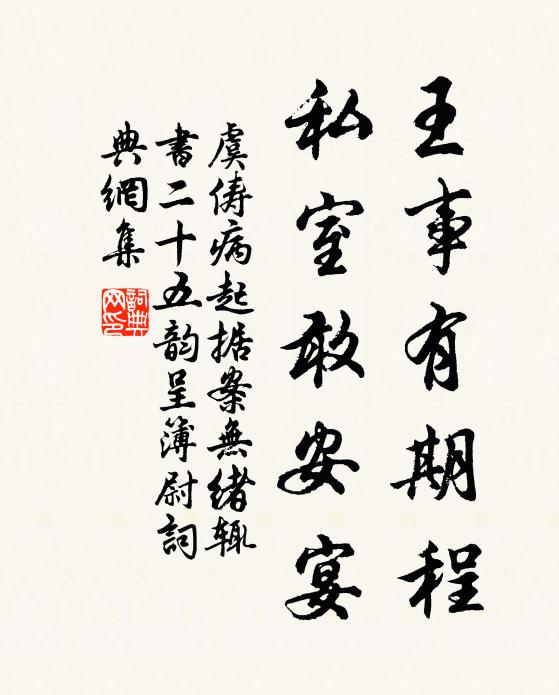 王事有期程
私室敢安宴
虞俦病起据案無緒辄
書二十五韵呈簿尉詞
典網集
詞典网印